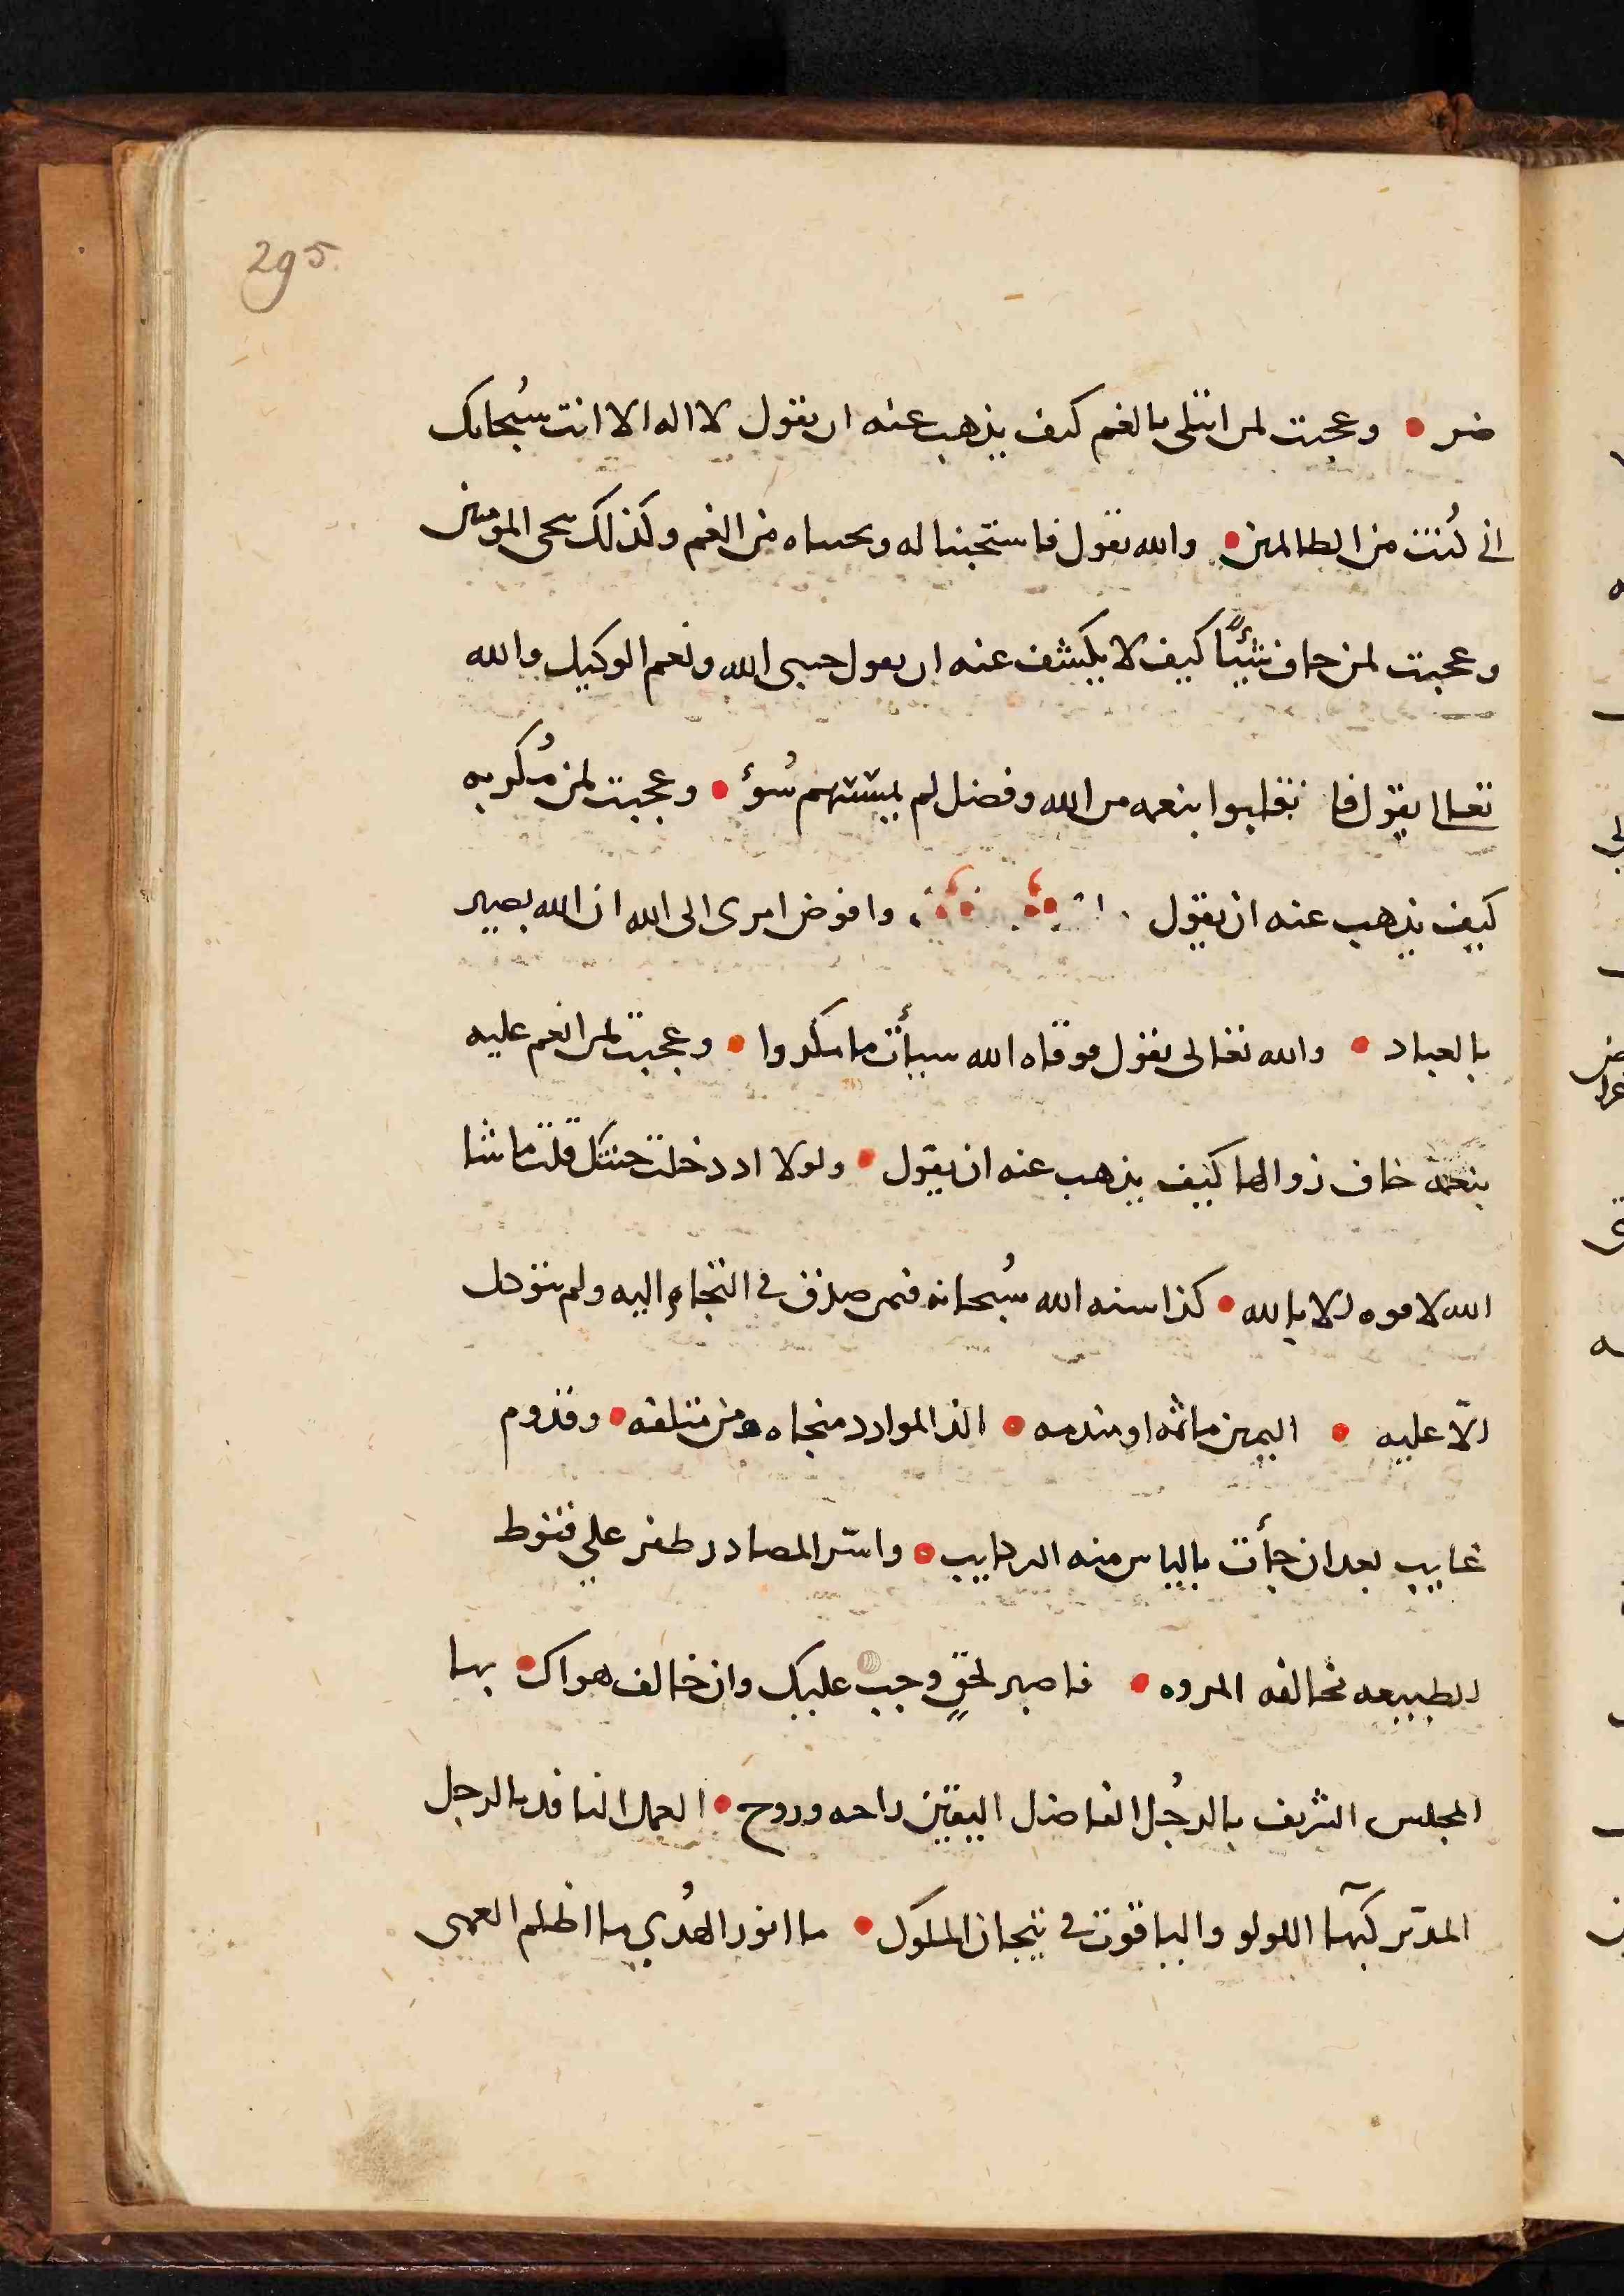 295
ضر • وعجبت لمن ابتلى بالغم كيف يذهب عنه ان يقول لا اله الا انت سُبحانك
اني كُنت من الظالمين • والله يقول فاستجبنا له ونجيناه من الغم وكذلك ننجي المؤمنين
وعجبت لمن خاف شيئًا كيف لا يكشف عنه ان يقول حسبي الله ونعم الوكيل والله
تعالى يقول فانقلبوا بنعمه من الله وفضل لم يمسسهم سُوء • وعجبت لمن مُكر به
كيف يذهب عنه ان يقول وافوض امرى الى الله ان الله بصير
بالعباد • والله تعالى يقول فوقاه الله سيأت ما مكروا • وعجبت لمن انعم عليه
بنعمة خاف زوالها كيف يذهب عنه ان يقول • ولولا اد دخلت جنتك قلت ما شا
الله لا قوه الا بالله • كذا سنه الله سُبحانه فمن صدق في التجاءِ اليه ولم يتوكل
الّا عليه • اليمين ماثمه او مندمه • الذ الموارد منجاه من متلفه • وقدوم
غايب بعد ان جأت بالياس منه الركايب • واسّر المصادر ظفر علي قنوط
الطبيعه مخالفه المروه • فاصبر لحقٍ وجب عليك وان خالف هواك • بها
المجلس الشريف بالرجُل الفاضل اليقين راحه وروح • العمل النافد بالرجل
المدبّر كبهآ اللولو والياقوت في تيجان الملوك • ما انور الهُدي ما اظلم العمى